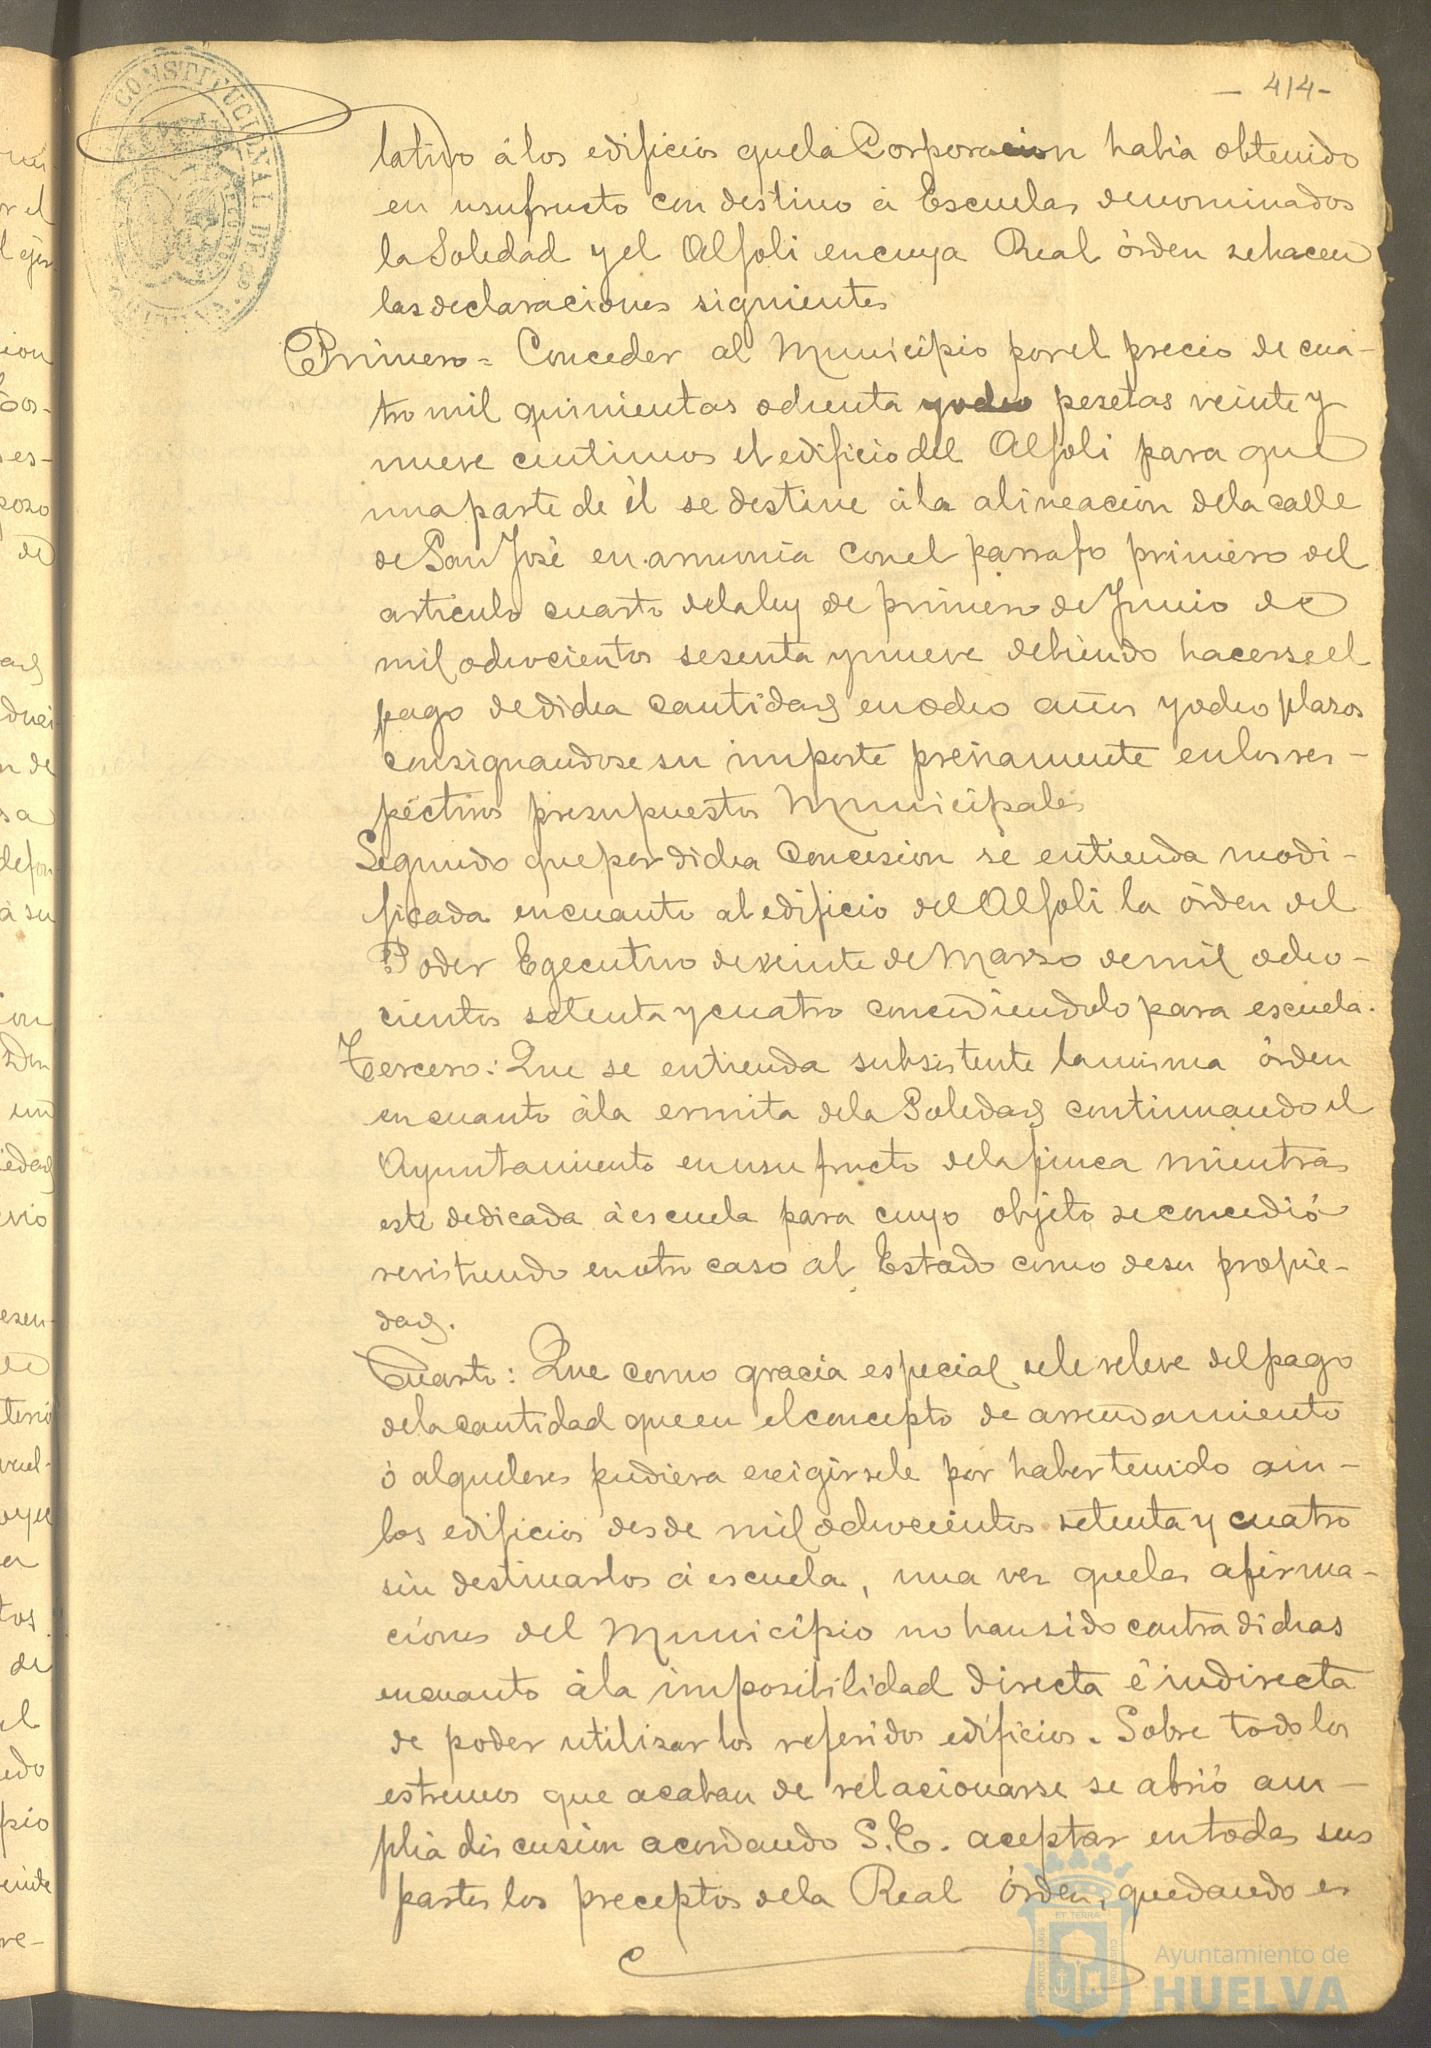 - 414-
CONSTITUCIONAL DE
lativo á los edificios que la Corporacion habia obtenido
en usufructo con destino á Escuelas denominados
la Soledad y el Alfoli en cuya Real órden se hacen
las declaraciones siguientes
Primero = Conceder al Municipio por el precio de cua-
tro mil quinientas ochenta y ocho pesetas veinte y
nueve centimos el edificio del Alfoli para que
una parte de él se destine á la alineacion de la calle
de San José en armonia con el parrafo primero del
articulo cuarto de la ley de primero de Junio de
mil ochocientos sesenta y nueve debiendo hacerse el
pago de dicha cantidad en ocho años y ocho plazos
consignandose su importe préviamente en los res-
péctivos presupuestos Municipales
Segundo que por dicha Concesion se entienda modi-
ficada en cuanto al edificio del Alfoli la órden del
Poder Egecutivo de veinte de Marzo de mil ocho-
cientos setenta y cuatro concediendolo para escuela.
Tercero: Que se entienda subsistente la misma órden
en cuanto á la ermita de la Soledad continuando el
Ayuntamiento en usufructo de la finca mientras
esté dedicada á escuela para cuyo objeto se concedió
revirtiendo en otro caso al Estado como de su propie-
dad.
Cuarto: Que como gracia especial se le releve del pago
de la cantidad que en el concepto de arrendamiento
ó alquileres pudiera exigirsele por haber tenido am-
bos edificios desde mil ochocientos setenta y cuatro
sin destinarlos á escuela, una vez que las afirma-
ciones del Municipio no han sido contradichas
en cuanto á la imposibilidad directa é indirecta
de poder utilizar los referidos edificios. Sobre todo los
estremos que acaban de relacionarse se abrió am-
plia discusion acordando S.E. aceptar en todas sus
partes los preceptos de la Real órden, quedando es
Ayuntamiento de
HUELVA